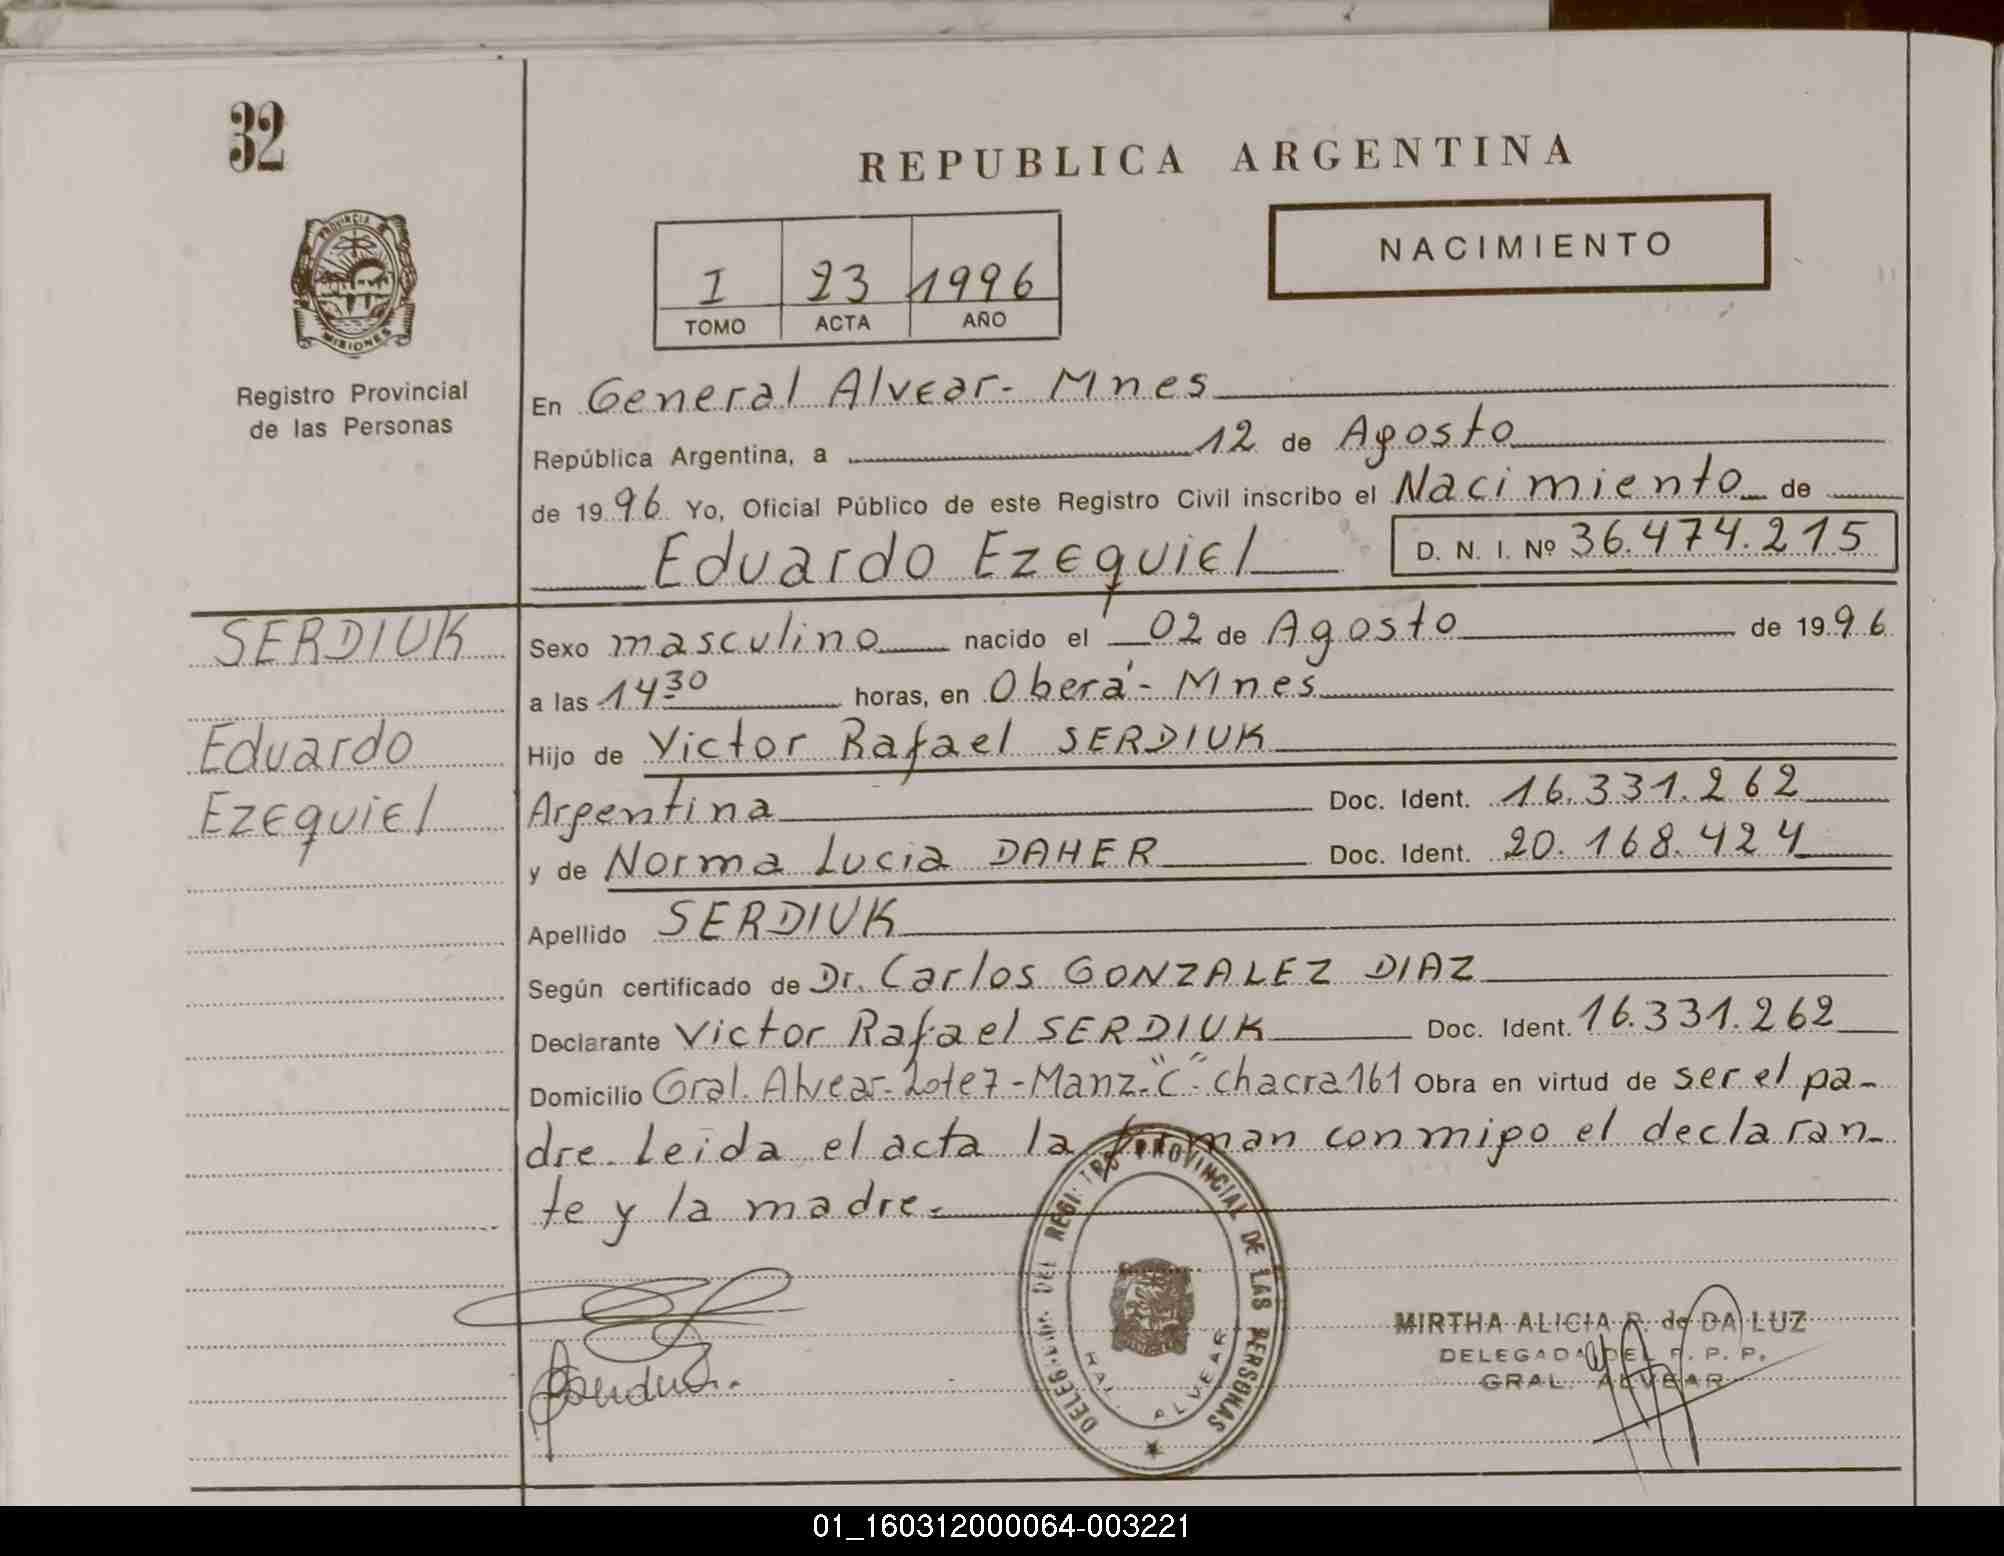 32
REPUBLICA ARGENTINA
NACIMIENTO
I 23 1996
TOMO ACTA AÑO
PROVINCIA
MISIONES
Registro Provincial
de las Personas
En General Alvear - Mnes
República Argentina, a 12 de Agosto
de 1996 Yo, Oficial Público de este Registro Civil inscribo el Nacimiento de
Eduardo Ezequiel D. N. I. Nº 36.474.215
SERDIUK
Eduardo
Ezequiel
Sexo masculino nacido el 02 de Agosto de 1996
a las 14 30 horas, en Oberá - Mnes
Hijo de Victor Rafael SERDIUK
Argentina Doc. Ident. 16.331.262
y de Norma Lucia DAHER Doc. Ident. 20.168.424
Apellido SERDIUK
Según certificado de Dr. Carlos GONZALEZ DIAZ
Declarante Victor Rafael SERDIUK Doc. Ident. 16.331.262
Domicilio Gral. Alvear - Lote 7 - Manz. "C" - chacra 161 Obra en virtud de ser el pa-
dre. Leida el acta la firman conmigo el declaran-
te y la madre.
DEL REGISTRO PROVINCIAL DE LAS PERSONAS
ALVEAR
MIRTHA ALICIA R. de DA LUZ
DELEGADA DEL R. P. P.
GRAL. ALVEAR
01_160312000064-003221